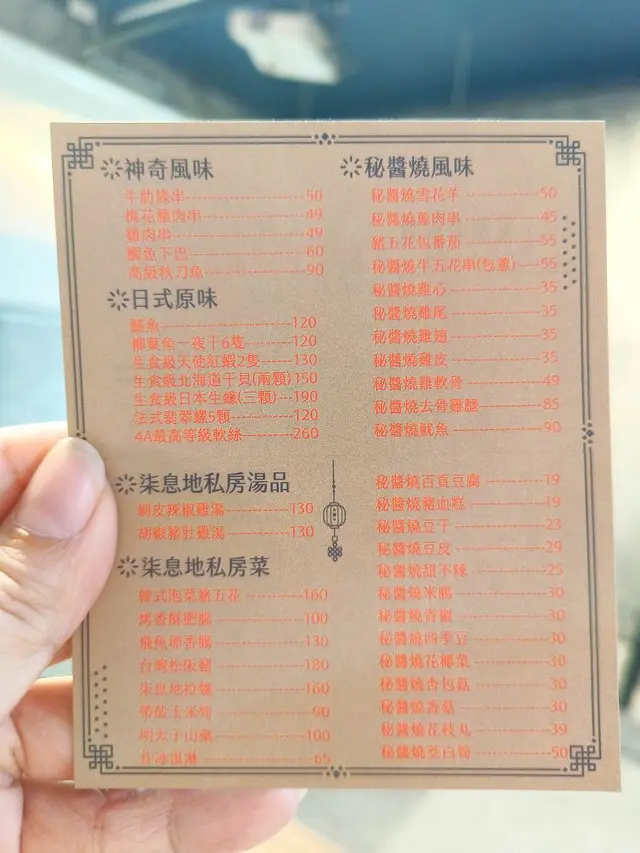 神奇風味
牛肋條串 50
梅花豬肉串 49
雞肉串 49
鯛魚下巴 60
高級秋刀魚 90
日式原味
魚 120
柳葉魚一夜干6隻 120
生食級天使紅蝦2隻 130
生食級北海道干貝(兩顆) 150
生食級日本生蠔(三顆) 190
法式翡翠螺5顆 120
4A最高等級軟絲 260
柒息地私房湯品
剝皮辣椒雞湯 130
胡椒豬肚雞湯 130
柒息地私房菜
韓式泡菜豬五花 160
烤香酥肥腸 100
飛魚卵香腸 130
台灣松阪豬 180
柒息地拉麵 160
玉米筍 90
明太子山藥 100
冰淇淋 65
秘醬燒風味
秘醬燒雪花羊 50
秘醬燒雞肉串 45
豬五花包番茄 55
秘醬燒牛五花串(包蔥) 55
秘醬燒雞心 35
秘醬燒雞尾 35
秘醬燒雞翅 35
秘醬燒雞皮 35
秘醬燒雞軟骨 49
秘醬燒去骨雞腿 85
秘醬燒魷魚 90
秘醬燒百頁豆腐 19
秘醬燒豬血糕 19
秘醬燒豆干 23
秘醬燒豆皮 29
秘醬燒甜不辣 25
秘醬燒米腸 30
秘醬燒青椒 30
秘醬燒四季豆 30
秘醬燒花椰菜 30
秘醬燒杏包菇 30
秘醬燒香菇 30
秘醬燒花枝丸 39
秘醬燒茭白筍 50